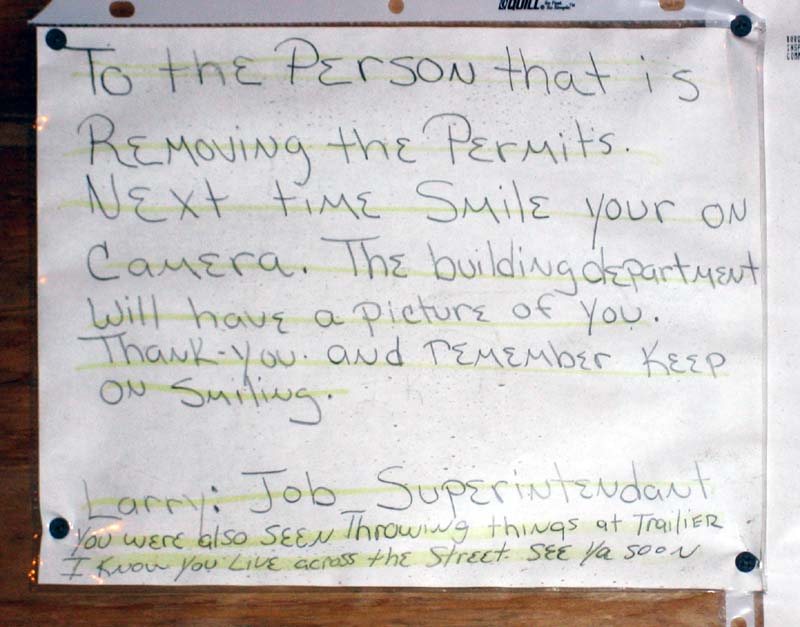 QUILL
To the Person that is
Removing the Permits.
Next time Smile your on
Camera. The building department
Will have a picture of you.
Thank-you. and remember Keep
on Smiling.
Larry: Job Superintendant
You were also seen Throwing things at Trailier
I Know you Live across the Street. See Ya soon